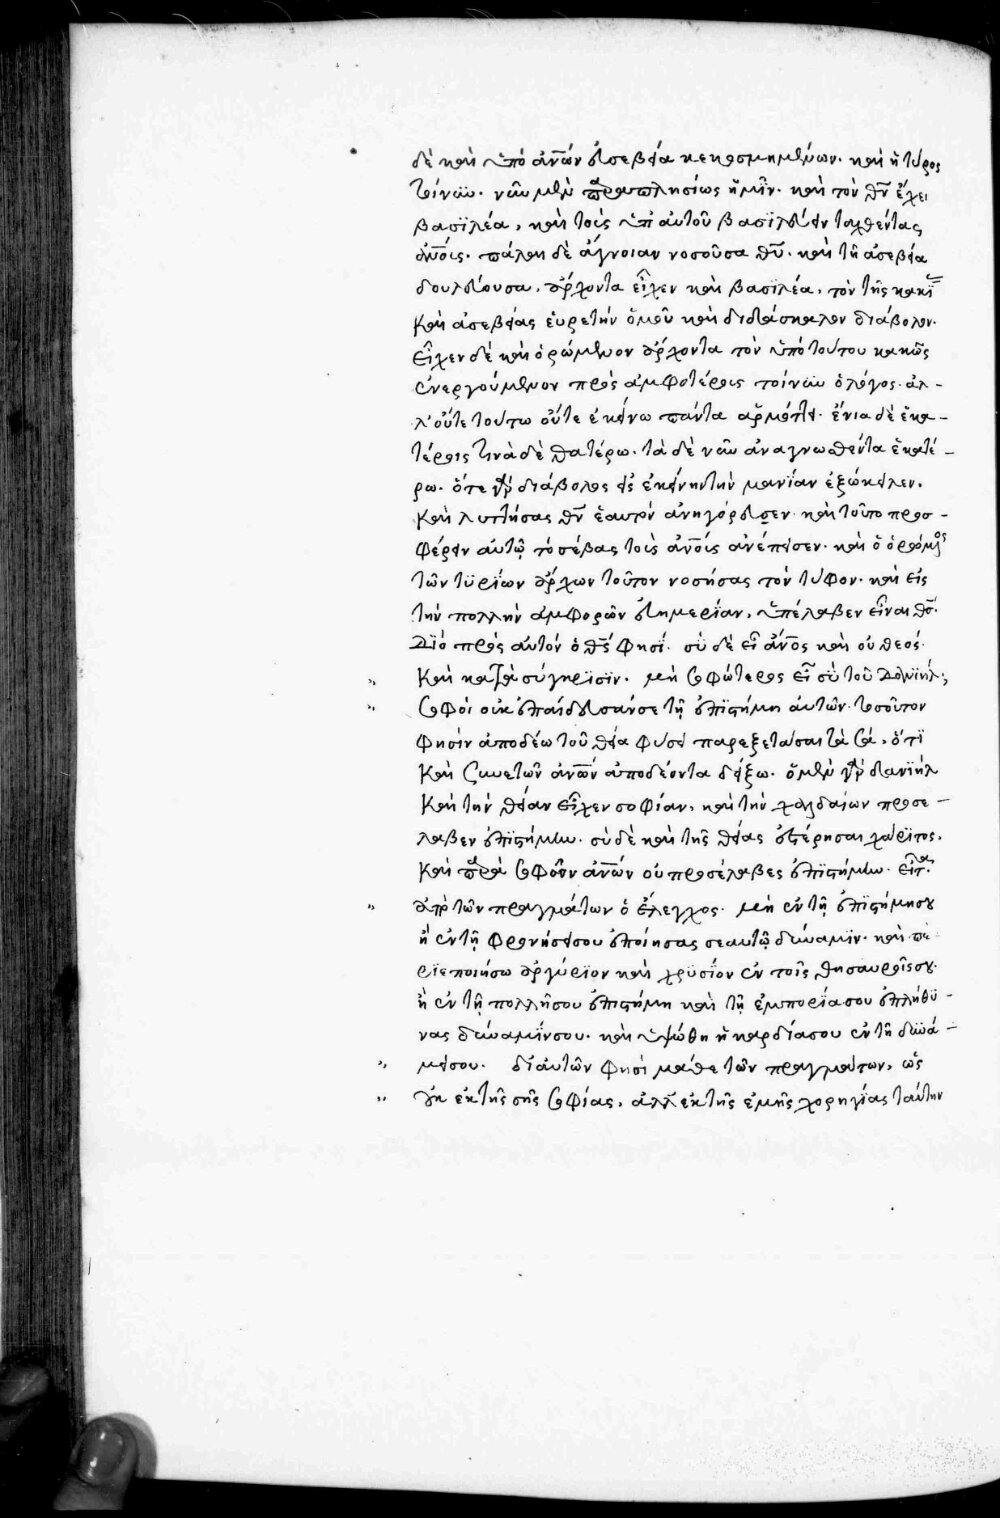 δὲ καὶ ὑπὸ ἀνῶν εὐσεβεία κεκοσμημένων. καὶ ἡ τύρος
τοίνυν. νῦν μὲν παραπλησίως ἡμῖν. καὶ τὸν θν ἔχει
βασϊλέα, καὶ τοὶς ὑπ' αὐτοῦ βασϊλεύειν ταχθέντας
ἀνοις. πάλαι δὲ ἄγνοιαν νοσοῦσα θυ. καὶ τῆ ἀσεβεία
δουλεύουσα, ἄρχοντα εἶχεν καὶ βασϊλέα, τὸν τῆς κακί
καὶ ἀσεβείας εὑρετὴν ὁμοῦ καὶ διδάσκαλον διάβολον.
εἶχεν δὲ καὶ ὁρώμενον ἄρχοντα τὸν ὑπὸ τούτου κακῶς
ἐνεργούμενον πρὸς ἀμφοτέροις τοίνυν ὁ λόγος. ἀλ-
λ' οὔτε τούτω οὔτε ἐκείνω πάντα ἁρμόττει. ἔνια δὲ ἑκα-
τέροις τινὰ δὲ θατέρω. τὰ δὲ νῦν ἀναγνωσθέντα ἑκατέ-
ρω. ὅτε γὰρ διάβολος εἰς ἐκείνην τὴν μανίαν ἐξώκειλεν.
καὶ λυττήσας θν ἑαυτὸν ἀνηγόρευσεν. καὶ τοῦτο προσ-
φέρειν αὐτῶ τὸ σέβας τοὶς ἀνοις ἀνέπεισεν. καὶ ὁ ὁρώμενος
τῶν τϋρίων ἄρχων τοῦτον νοσήσας τὸν τύφον. καὶ εἰς
τὴν πολλὴν ἀμφορῶν εὐημερίαν, ὑπέλαβεν εἶναι θς.
Διὸ πρὸς αὐτὸν ὁ θς φησί. σὺ δὲ εἶ ἄνος καὶ οὐ θεός.
καὶ κατὰ σύγκρισϊν. μὴ σοφώτερος εἶ σὺ τοῦ Δανϊήλ;
σοφοὶ οὐκ ἐπαίδευσάν σε τῆ ἐπϊστήμη αὐτῶν. τοσοῦτον
φησὶν ἀποδέω τοῦ θεία φύσει παρεξετάσαι τὰ σά, ὅτϊ
καὶ συνετῶν ἀνῶν ἀποδέοντα δείξω. ὁ μὲν γὰρ δανϊὴλ
καὶ τὴν θείαν εἶχεν σοφίαν, καὶ τὴν χαλδαίων προσέ-
λαβεν ἐπϊστήμην. σὺ δὲ καὶ τῆς θείας ἐστέρησαι χάρϊτος.
καὶ παρὰ σοφῶν ἀνῶν οὐ προσέλαβες ἐπϊστήμην. εἶτα
ἀπὸ τῶν πραγμάτων ὁ ἔλεγχος. μὴ ἐν τῆ ἐπϊστήμη σου
ἢ ἐν τῆ φρονήσει σου ἐποίησας σεαυτῶ δύναμϊν. καὶ πε
ρϊεποιήσω ἀργύρϊον καὶ χρϋσίον ἐν τοῖς θησαυροῖς σου.
ἢ ἐν τῆ πολλῆ σου ἐπϊστήμη καὶ τῆ ἐμπορία σου ἐπλήθϋ-
νας δύναμίν σου. καὶ ὑψώθη ἡ καρδία σου ἐν τῆ δυνά-
μει σου. δι' αὐτῶν φησὶ μάθε τῶν πραγμάτων, ὡς
οὐκ ἐκ τῆς σῆς σοφίας, ἀλλ' ἐκ τῆς ἐμῆς χορηγίας ταύτην